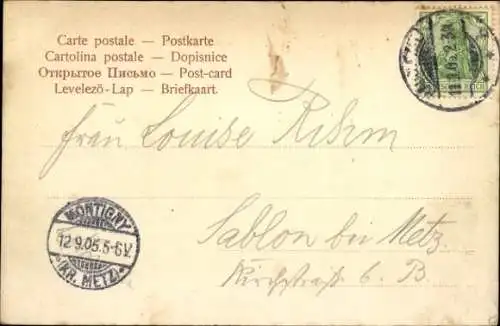 Carte postale — Postkarte
Cartolina postale — Dopisnice
Открытое Письмо — Post-card
Levelező-Lap — Briefkaart.
Frau Louise Rihm
Sablon bei Metz.
Kirchstraße 6. B.
MONTIGNY
12.9.05.5-6V.
*(KR. METZ)*